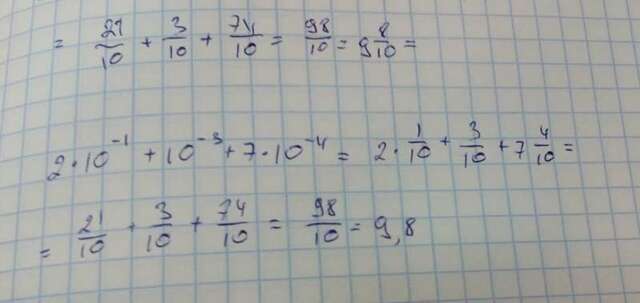 = 21/10 + 3/10 + 74/10 = 98/10 = 9 8/10 =
2·10⁻¹ + 10⁻³ + 7·10⁻⁴ = 2·1/10 + 3/10 + 7 4/10 =
= 21/10 + 3/10 + 74/10 = 98/10 = 9,8